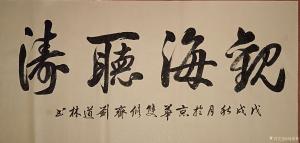 觀海聽濤
戊戌秋月於京華雙修齋劉道林書